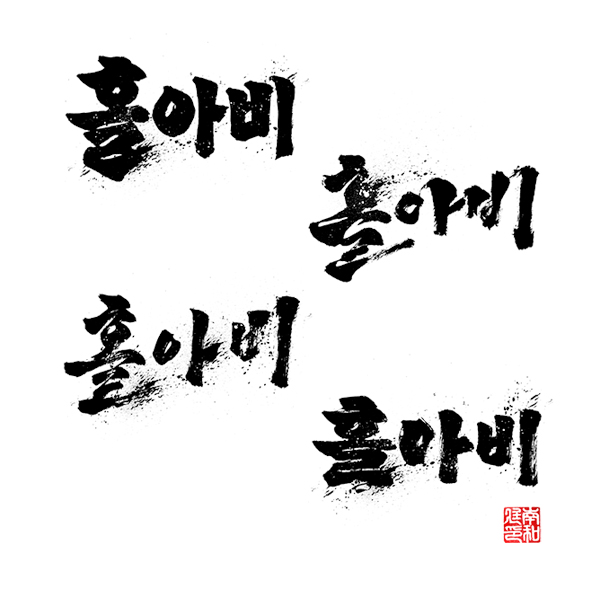 홀아비
홀아비
홀아비
홀아비